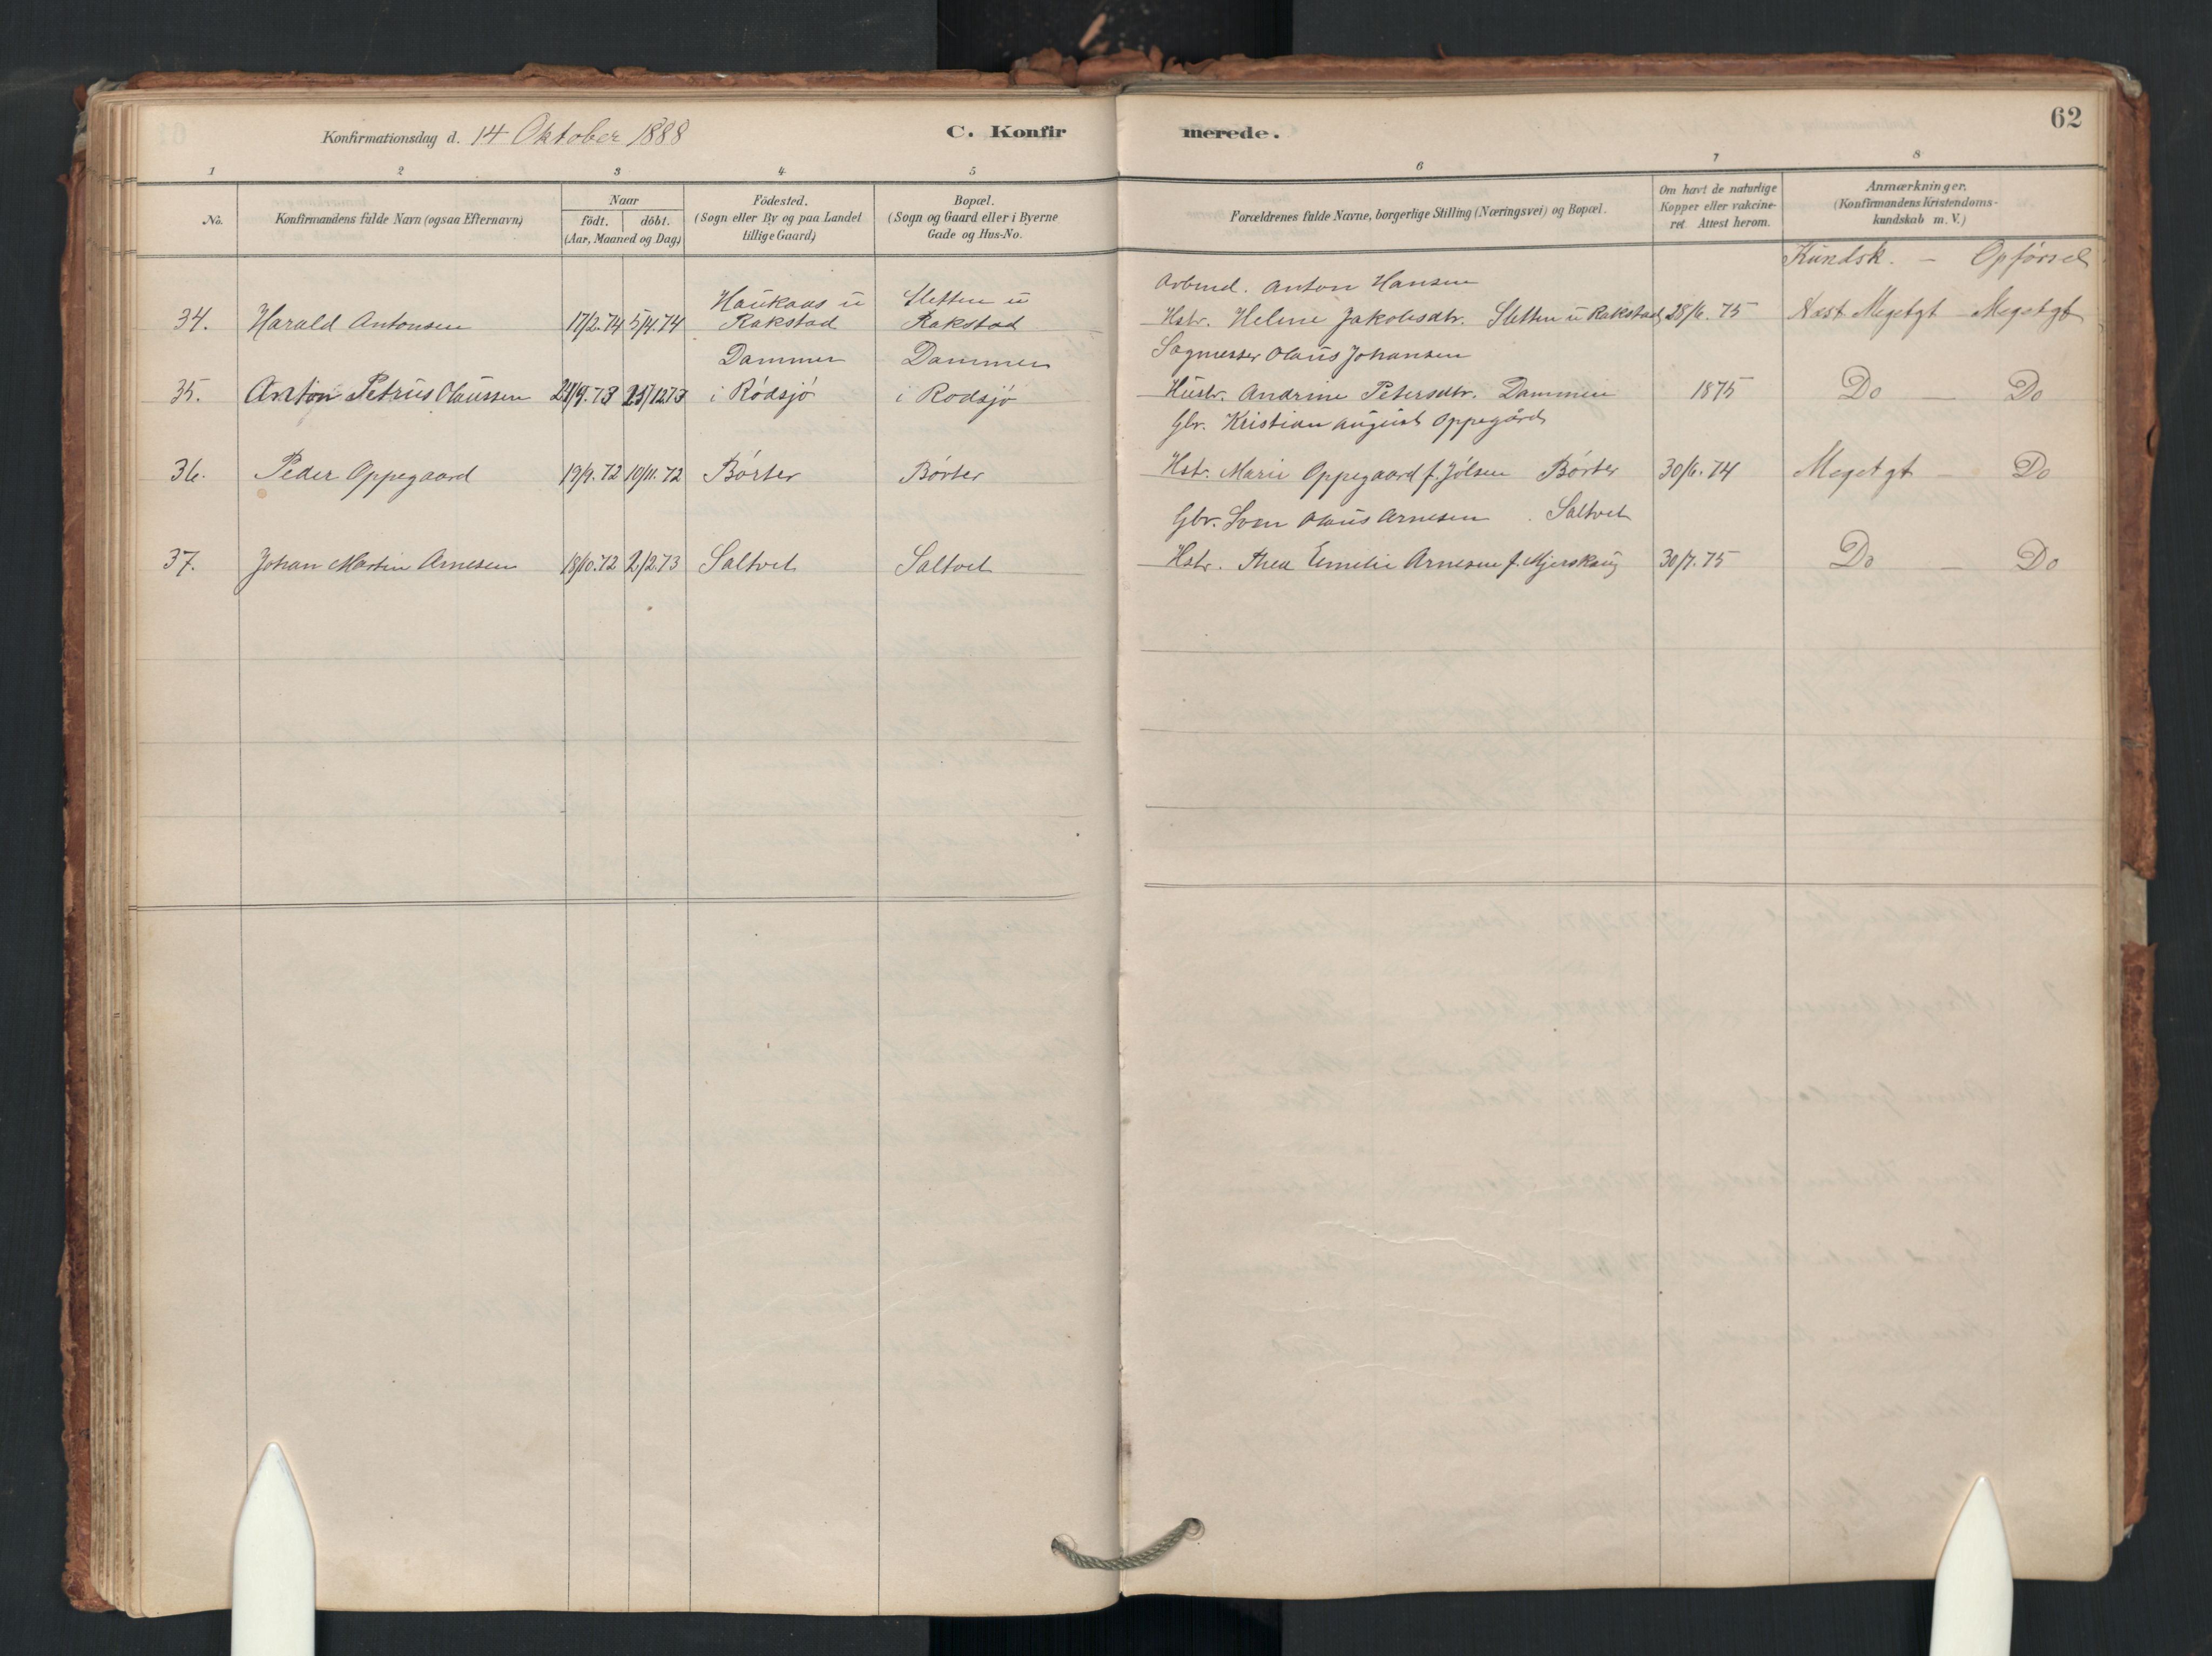 62
Konfirmationsdag d. 14 Oktober 1888
C. Konfirmerede.
1 2 3 4 5 6 7 8
No.
Konfirmandens fulde Navn (ogsaa Efternavn)
Naar
födt. döbt.
(Aar, Maaned og Dag)
Födested.
(Sogn eller By og paa Landet
tillige Gaard)
Bopæl.
(Sogn og Gaard eller i Byerne
Gade og Hus-No.
Forældrenes fulde Navne, borgerlige Stilling (Næringsvei) og Bopæl.
Om havt de naturlige
Kopper eller vakcine-
ret Attest herom.
Anmærkninger.
(Konfirmandens Kristendoms-
kundskab m. V.)
Kundsk. - Opførsel
Haukaas u Sletten u Arbeid. Anton Hansen
34. Harald Antonsen 17/2.74 5/4.74 Rakstad Rakstad Hstr. Heline Jakobsdtr. Sletten u Rakstad 28/6.75 Næst Megetgt - Megetgt
Dammen Dammen Sagmester Olaus Johansen
35. Anton Petrus Olaussen 24/9.73 25/12.73 i Rødsjö i Rodsjö Hustr. Andrine Petersdtr. Dammen 1875 Do - Do
Gbr. Kristian August Oppegård
36. Peder Oppegaard 19/9.72 10/11.72 Börter Börter Hstr. Marie Oppegaard f. Jölsen Börter 30/6.74 Megetgt - Do
Gbr. Sven Olaus Arnesen . Saltvet
37. Johan Martin Arnesen 18/10.72 2/2.73 Saltvet Saltvet Hstr. Thea Emelie Arnesen f. Mjerskaug 30/7.75 Do - Do